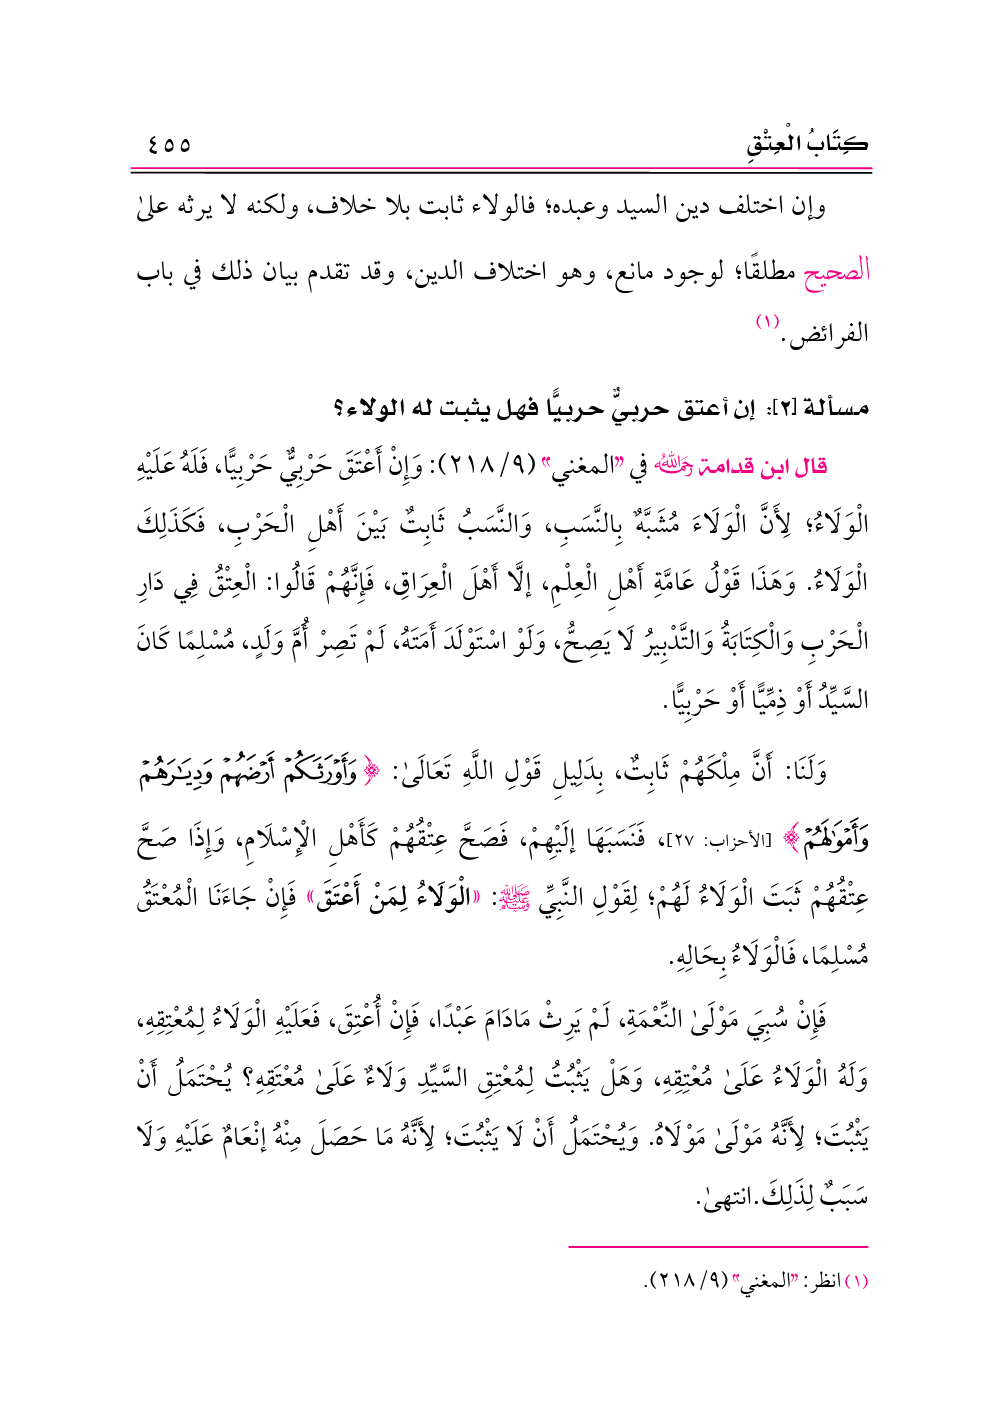 كِتَابُ الْعِتْقِ ٤٥٥
وإن اختلف دين السيد وعبده؛ فالولاء ثابت بلا خلاف، ولكنه لا يرثه علىٰ
الصحيح مطلقًا؛ لوجود مانع، وهو اختلاف الدين، وقد تقدم بيان ذلك في باب
الفرائض.(١)
مسألة [٢]: إن أعتق حربيٌّ حربيًّا فهل يثبت له الولاء؟
قال ابن قدامة رَحِمَهُ اللهُ في "المغني" (٩/ ٢١٨): وَإِنْ أَعْتَقَ حَرْبِيٌّ حَرْبِيًّا، فَلَهُ عَلَيْهِ
الْوَلَاءُ؛ لِأَنَّ الْوَلَاءَ مُشَبَّهٌ بِالنَّسَبِ، وَالنَّسَبُ ثَابِتٌ بَيْنَ أَهْلِ الْحَرْبِ، فَكَذَلِكَ
الْوَلَاءُ. وَهَذَا قَوْلُ عَامَّةِ أَهْلِ الْعِلْمِ، إلَّا أَهْلَ الْعِرَاقِ، فَإِنَّهُمْ قَالُوا: الْعِتْقُ فِي دَارِ
الْحَرْبِ وَالْكِتَابَةُ وَالتَّدْبِيرُ لَا يَصِحُّ، وَلَوْ اسْتَوْلَدَ أَمَتَهُ، لَمْ تَصِرْ أُمَّ وَلَدٍ، مُسْلِمًا كَانَ
السَّيِّدُ أَوْ ذِمِّيًّا أَوْ حَرْبِيًّا.
وَلَنَا: أَنَّ مِلْكَهُمْ ثَابِتٌ، بِدَلِيلِ قَوْلِ اللَّهِ تَعَالَىٰ: ﴿وَأَوْرَثَكُمْ أَرْضَهُمْ وَدِيَٰرَهُمْ
وَأَمْوَٰلَهُمْ﴾ [الأحزاب: ٢٧]، فَنَسَبَهَا إلَيْهِمْ، فَصَحَّ عِتْقُهُمْ كَأَهْلِ الْإِسْلَامِ، وَإِذَا صَحَّ
عِتْقُهُمْ ثَبَتَ الْوَلَاءُ لَهُمْ؛ لِقَوْلِ النَّبِيِّ ﷺ: «الْوَلَاءُ لِمَنْ أَعْتَقَ» فَإِنْ جَاءَنَا الْمُعْتَقُ
مُسْلِمًا، فَالْوَلَاءُ بِحَالِهِ.
فَإِنْ سُبِيَ مَوْلَىٰ النِّعْمَةِ، لَمْ يَرِثْ مَادَامَ عَبْدًا، فَإِنْ أُعْتِقَ، فَعَلَيْهِ الْوَلَاءُ لِمُعْتِقِهِ،
وَلَهُ الْوَلَاءُ عَلَىٰ مُعْتِقِهِ، وَهَلْ يَثْبُتُ لِمُعْتِقِ السَّيِّدِ وَلَاءٌ عَلَىٰ مُعْتَقِهِ؟ يُحْتَمَلُ أَنْ
يَثْبُتَ؛ لِأَنَّهُ مَوْلَىٰ مَوْلَاهُ. وَيُحْتَمَلُ أَنْ لَا يَثْبُتَ؛ لِأَنَّهُ مَا حَصَلَ مِنْهُ إنْعَامٌ عَلَيْهِ وَلَا
سَبَبٌ لِذَلِكَ.انتهىٰ.
(١) انظر: "المغني" (٩/ ٢١٨).